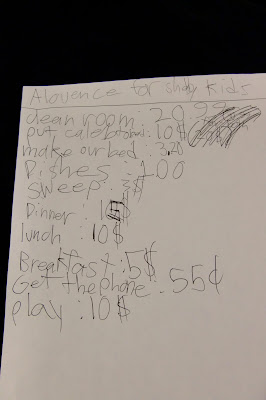 Alouence for Kids
clean room : 20.99
put caleb : 10$
make our bed : 3.20
Dishes : 1.00
Sweep : 3$
Dinner :
lunch : 10$
Breakfast : 5$
Get the phone : 55¢
play : 10$